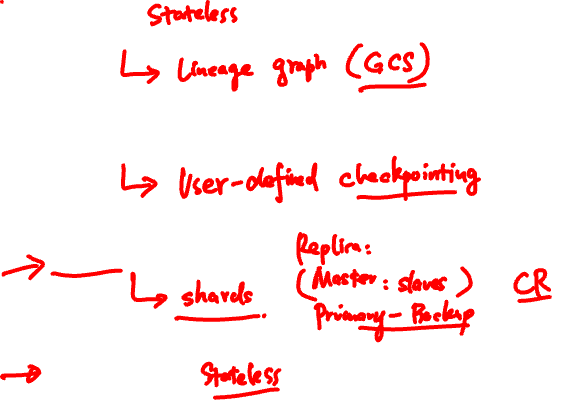 Stateless
Lineage graph (GCS)
User-defined checkpointing
Replica:
shards (Master: slaves) CR
Primary-Backup
Stateless